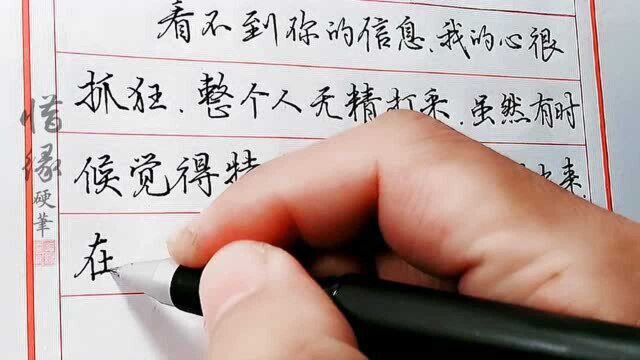 看不到你的信息、我的心很
抓狂、整个人无精打采、虽然有时
候觉得特 来
在
惜缘硬筆